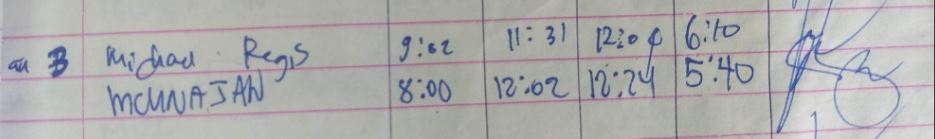 3 Michael Regis 9:02 11:31 12:04 6:10
MCUNAJAN 8:00 12:02 12:24 5:40